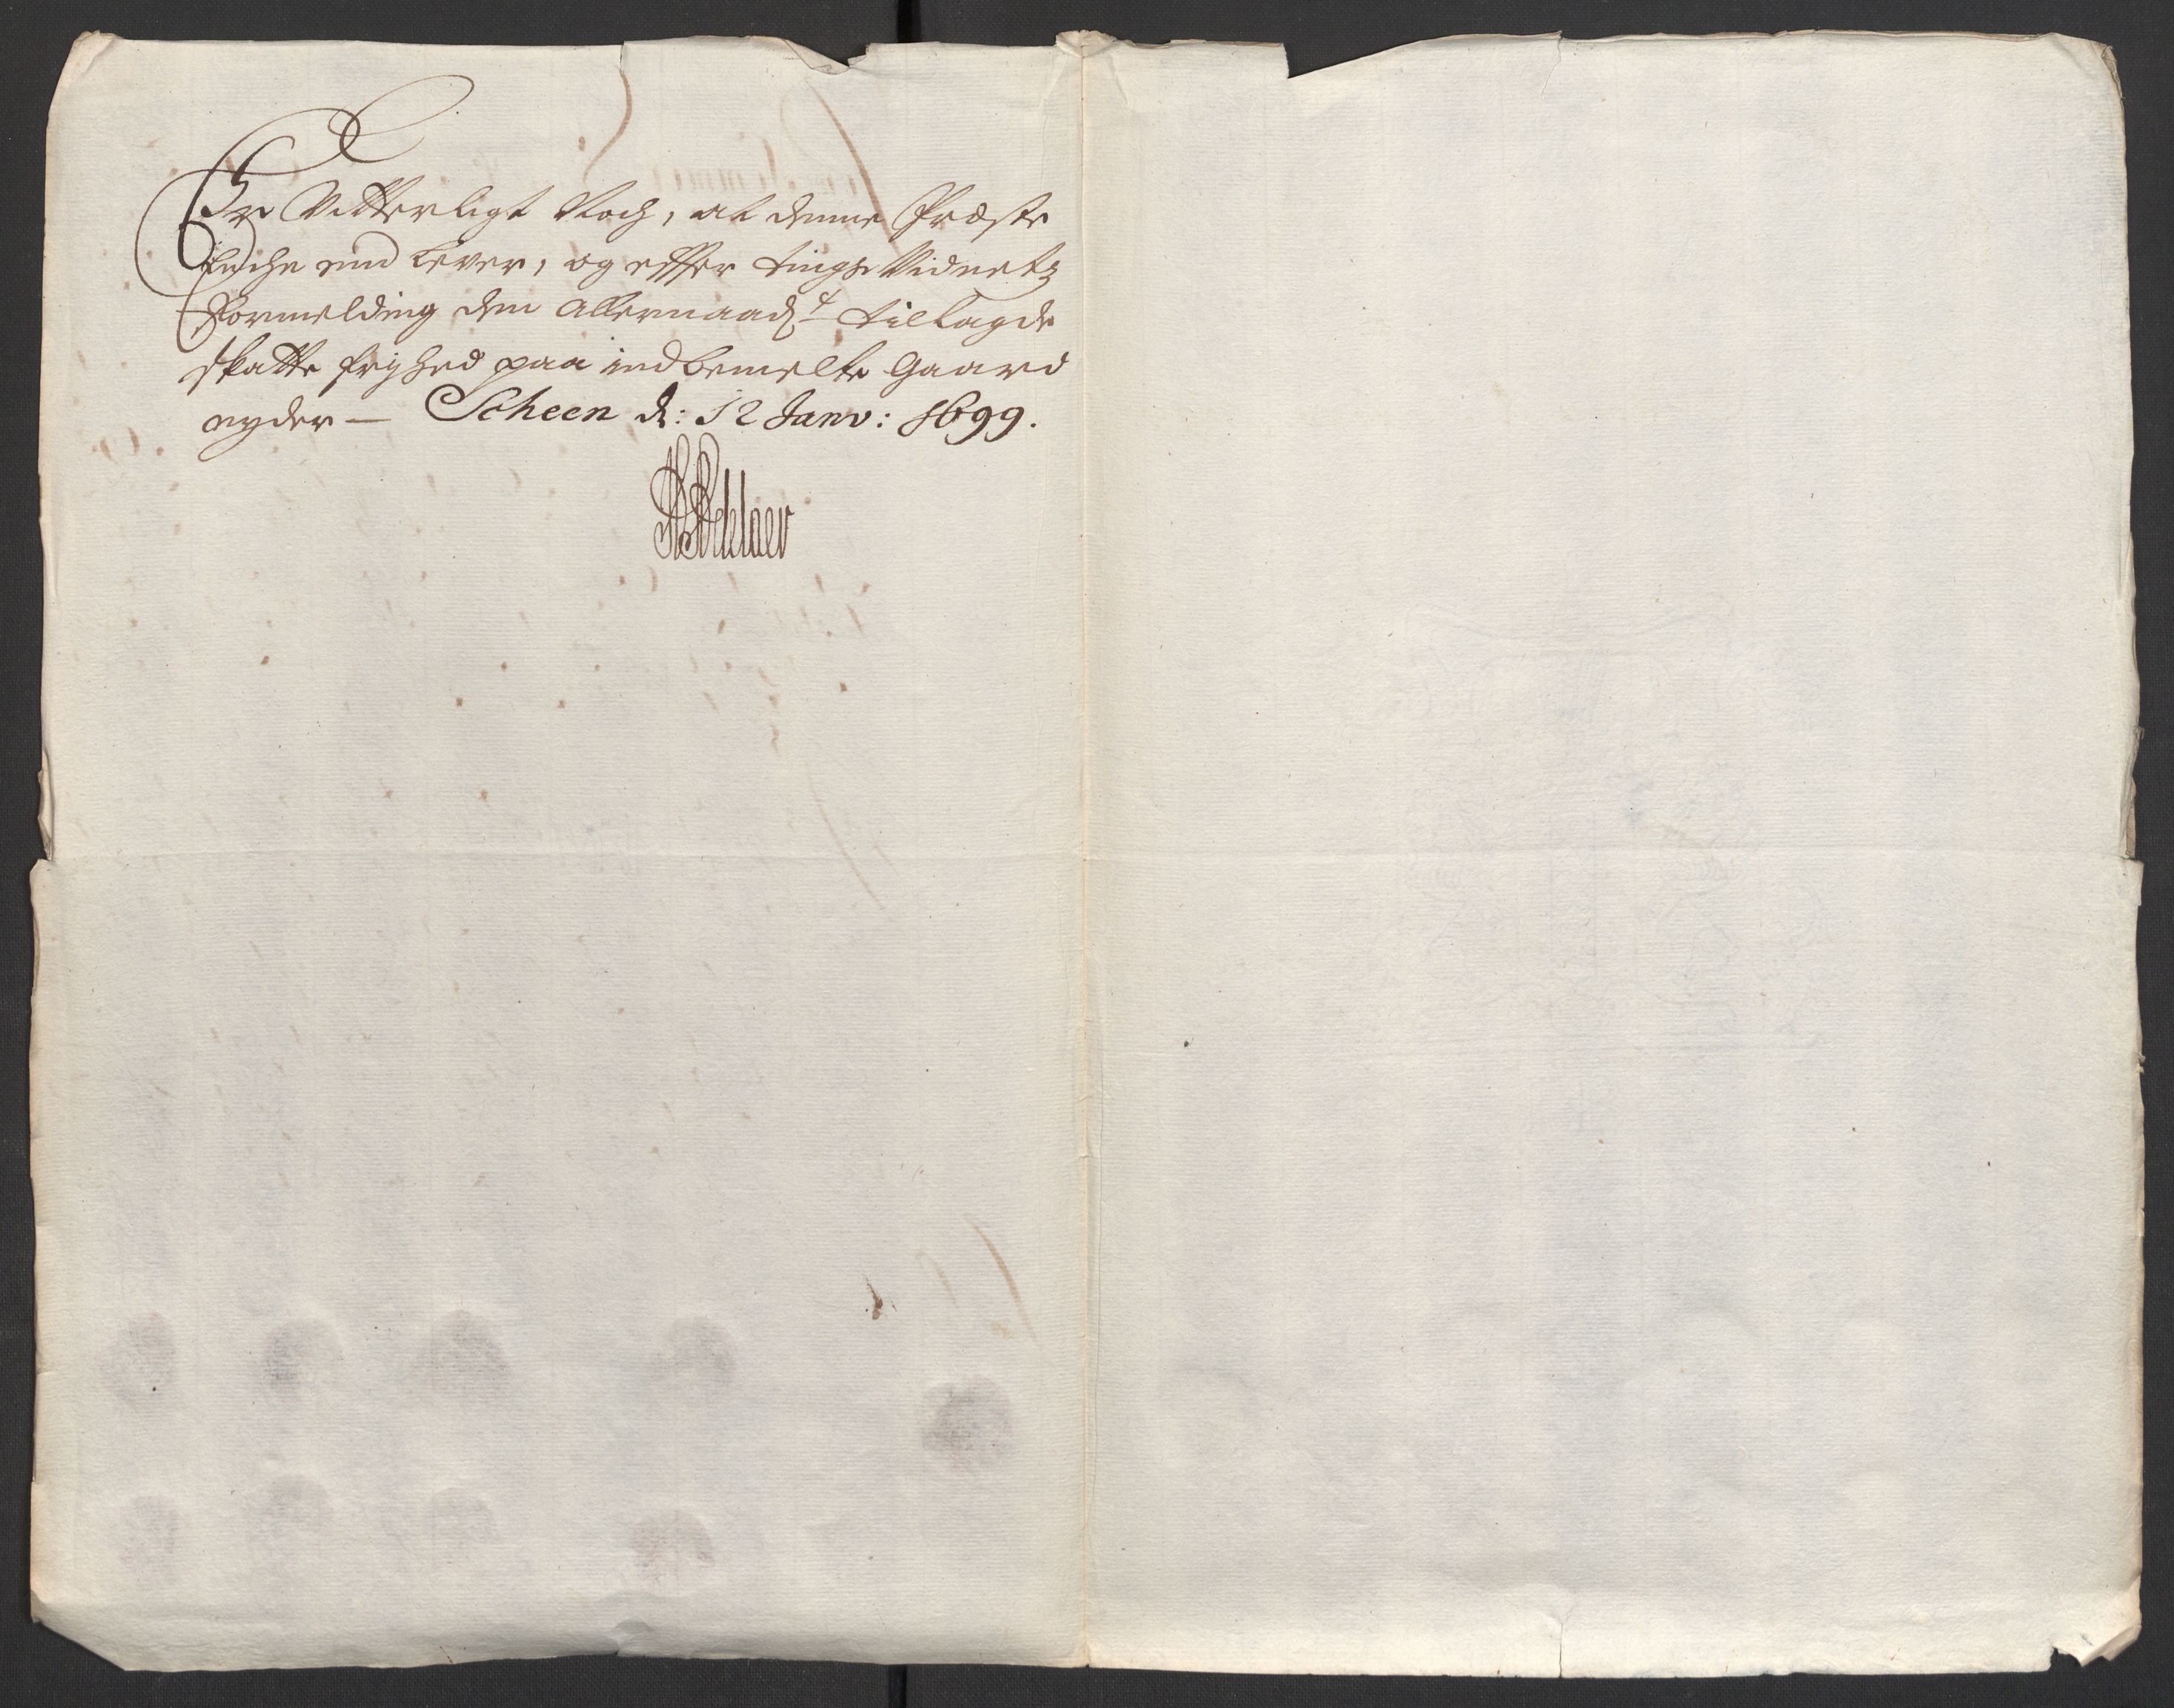 Er Vitterligt Noch, at denne Præste
Enche end lever, og effter tings Vidnets
Formelding den Allernaadt tillagde
skatte frihed paa indbemelte Gaard
nyder — Scheen d: 12 Janv: 1699.